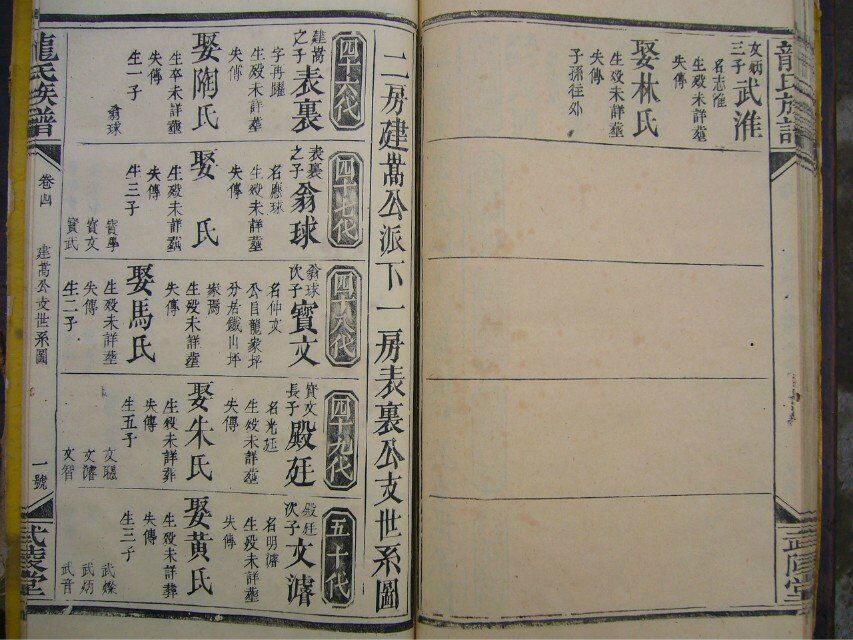 龍氏族譜
武陵堂
文炳三子
武淮
名志淮
生殁未詳塟
失傳
娶林氏
生殁未詳塟
失傳
子孫往外
二房建蒿公派下一房表裏公支世系圖
四十六代
建蒿之子
表裏
字再躍
生殁未詳塟
失傳
娶陶氏
生卒未詳塟
失傳
生一子
翁球
四十七代
表裏之子
翁球
名應球
生殁未詳塟
失傳
娶 氏
生殁未詳塟
失傳
生三子
寳學
寳文
寳武
四十八代
翁球次子
寳文
名仲文
公自龍家坪
分居鐵山坪
生殁未詳塟
失傳
娶馬氏
生殁未詳塟
失傳
生二子
四十九代
寳文長子
殿廷
名光廷
生殁未詳塟
失傳
娶朱氏
生殁未詳葬
失傳
生五子
文聰
文濬
文智
五十代
殿廷次子
文濬
名明濬
生殁未詳塟
失傳
娶黄氏
生殁未詳葬
失傳
生三子
武燦
武炳
武音
龍氏族譜
卷四
建蒿公支世系圖
一號
武陵堂